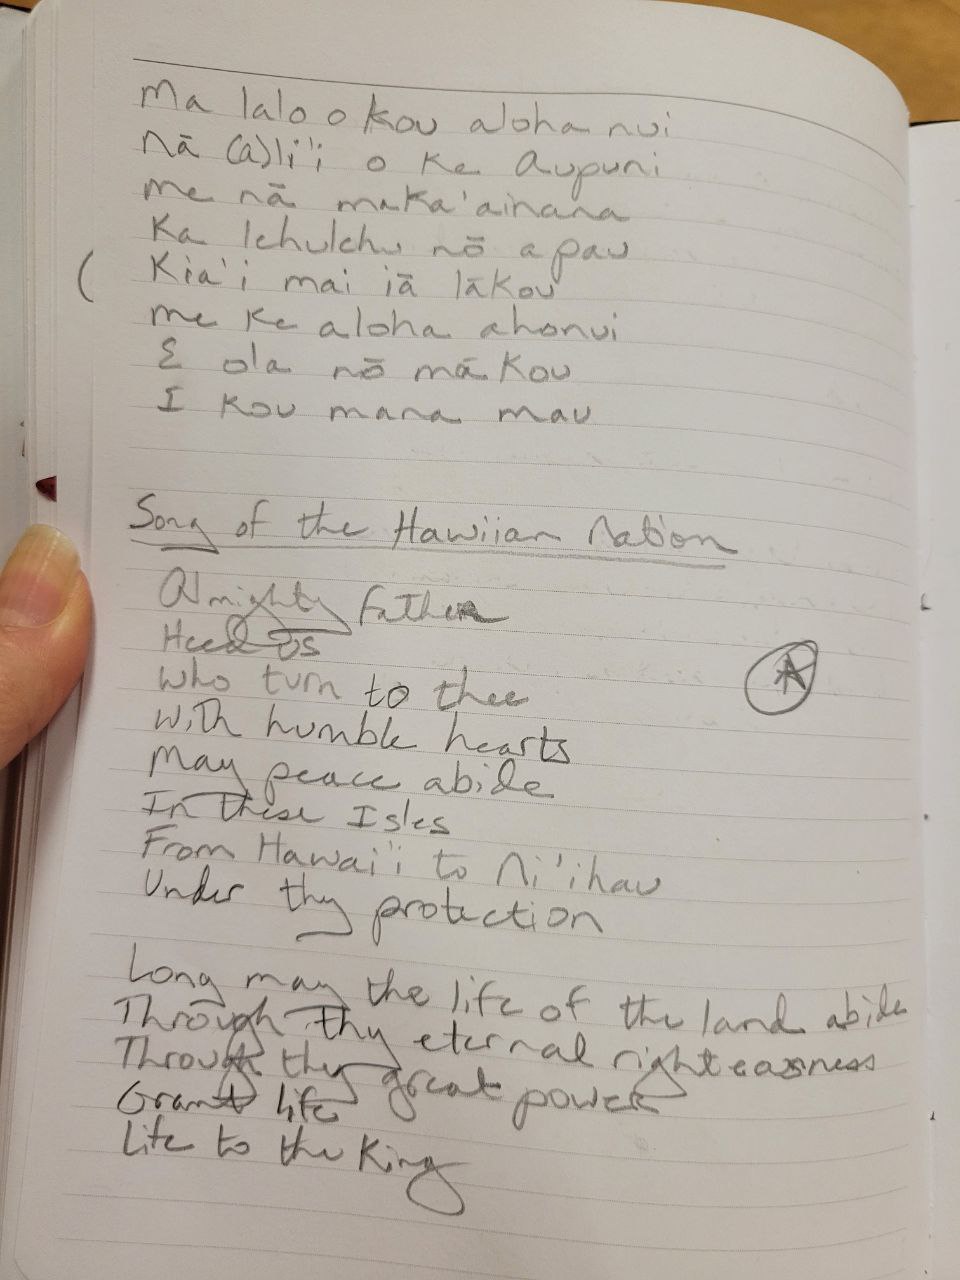 Ma lalo o kou aloha nui
Nā (a)li'i o ke Aupuni
me nā maka'ainana
Ka lehulehu nō a pau
( Kia'i mai iā lākou
me ke aloha ahonui
E ola nō mā kou
I kou mana mau
Song of the Hawiian Nation
Almighty Father
Heed us
Who turn to thee
With humble hearts
May peace abide
In these Isles
From Hawai'i to Ni'ihau
Under thy protection
A
Long may the life of the land abide
Through thy eternal righteasness
Through thy great power
Grant life
Life to the King